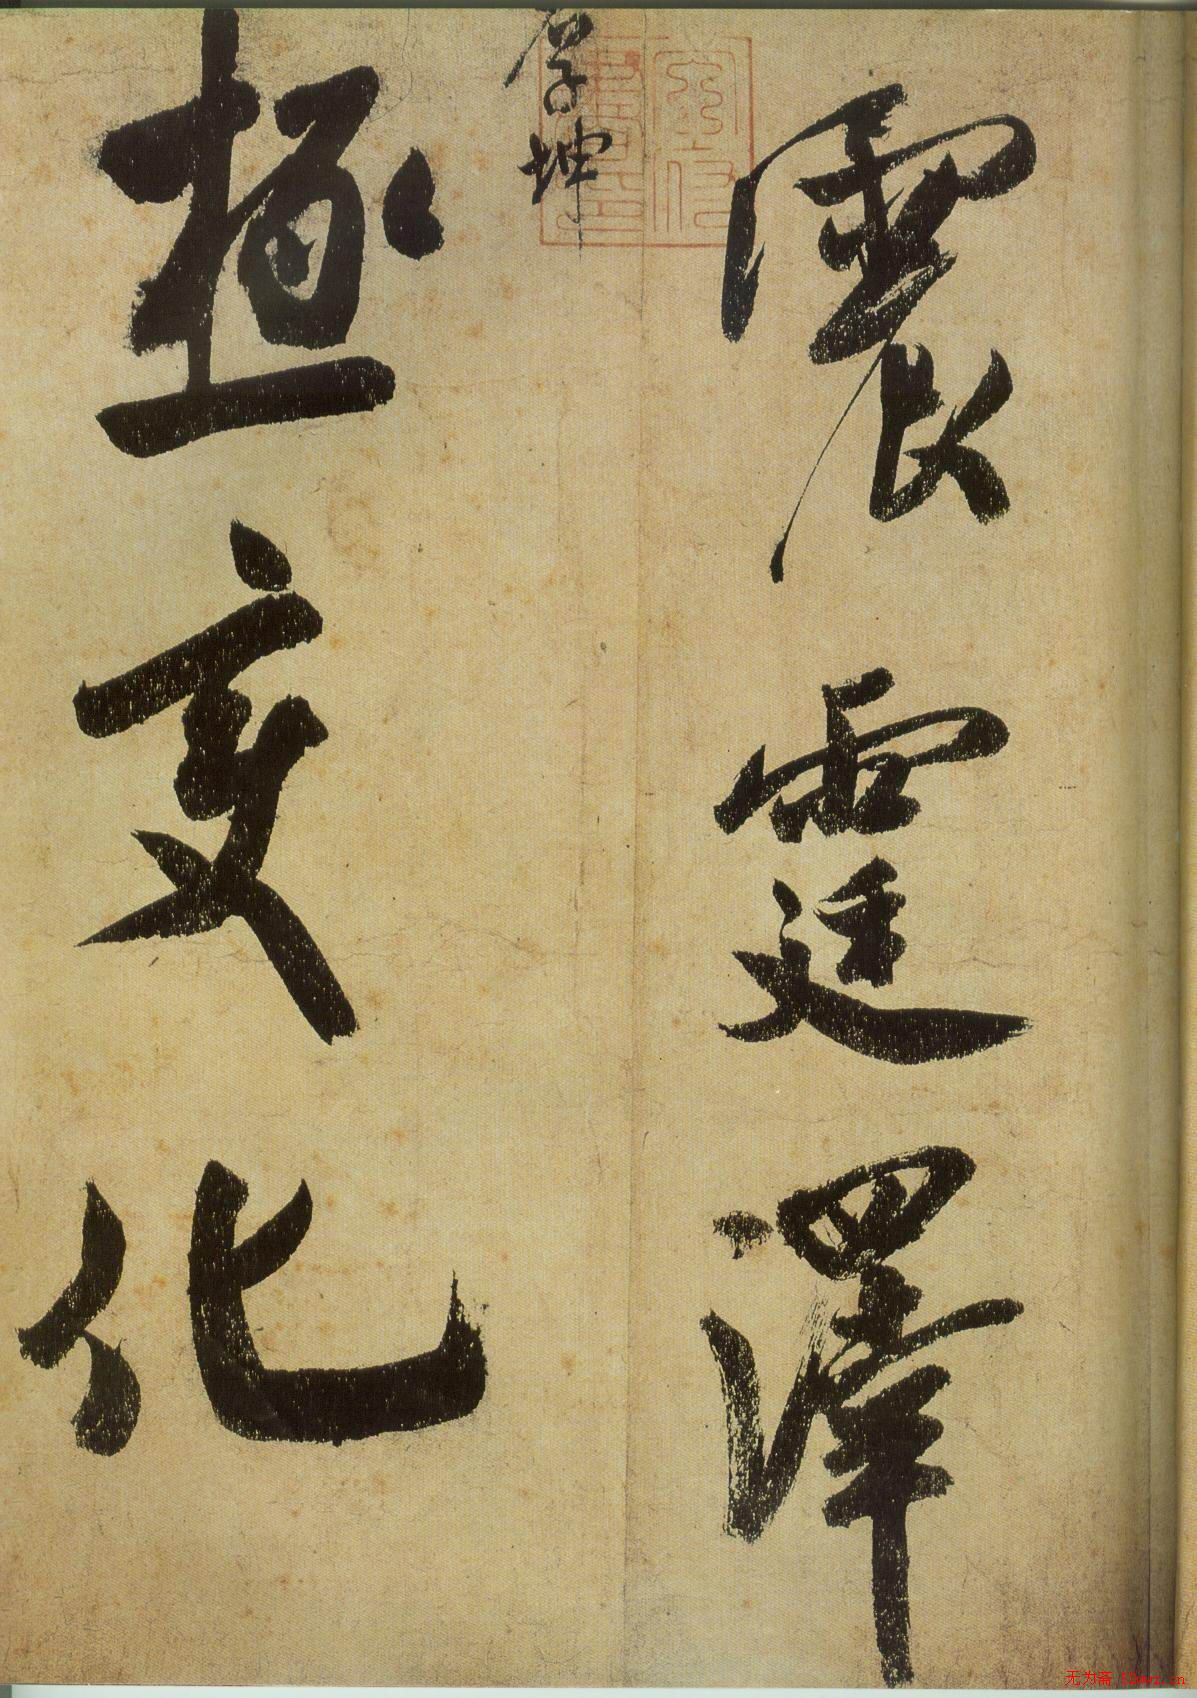 震霆澤
厚坤
極變化
无为斋